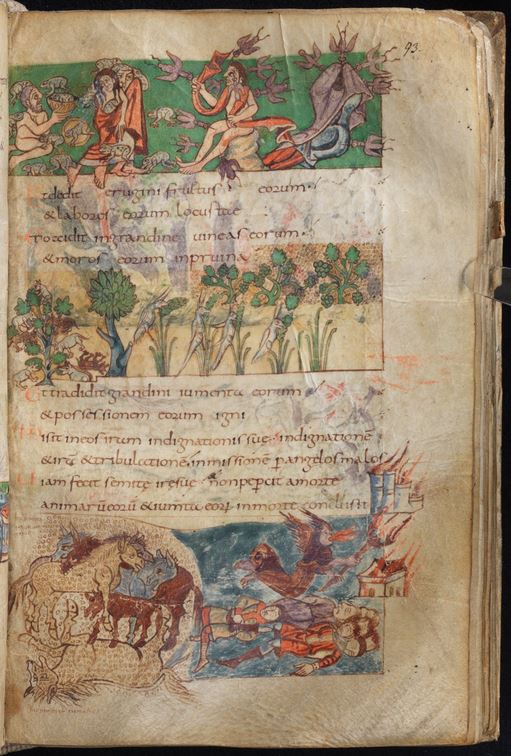 93
Et dedit erugini fructus eorum·
& labores eorum locustae
Et occidit in grandine uineas eorum·
& moros eorum in pruina
Et tradidit grandini iumenta eorum
& possessionem eorum igni
isit in eos iram indignationis sue· indignationē
& irā & tribulationē inmissionē p angelos malos
iam fecit semitę irę suę· non pepercit a morte
animarū eorū & iumta eorū in morte conclusit